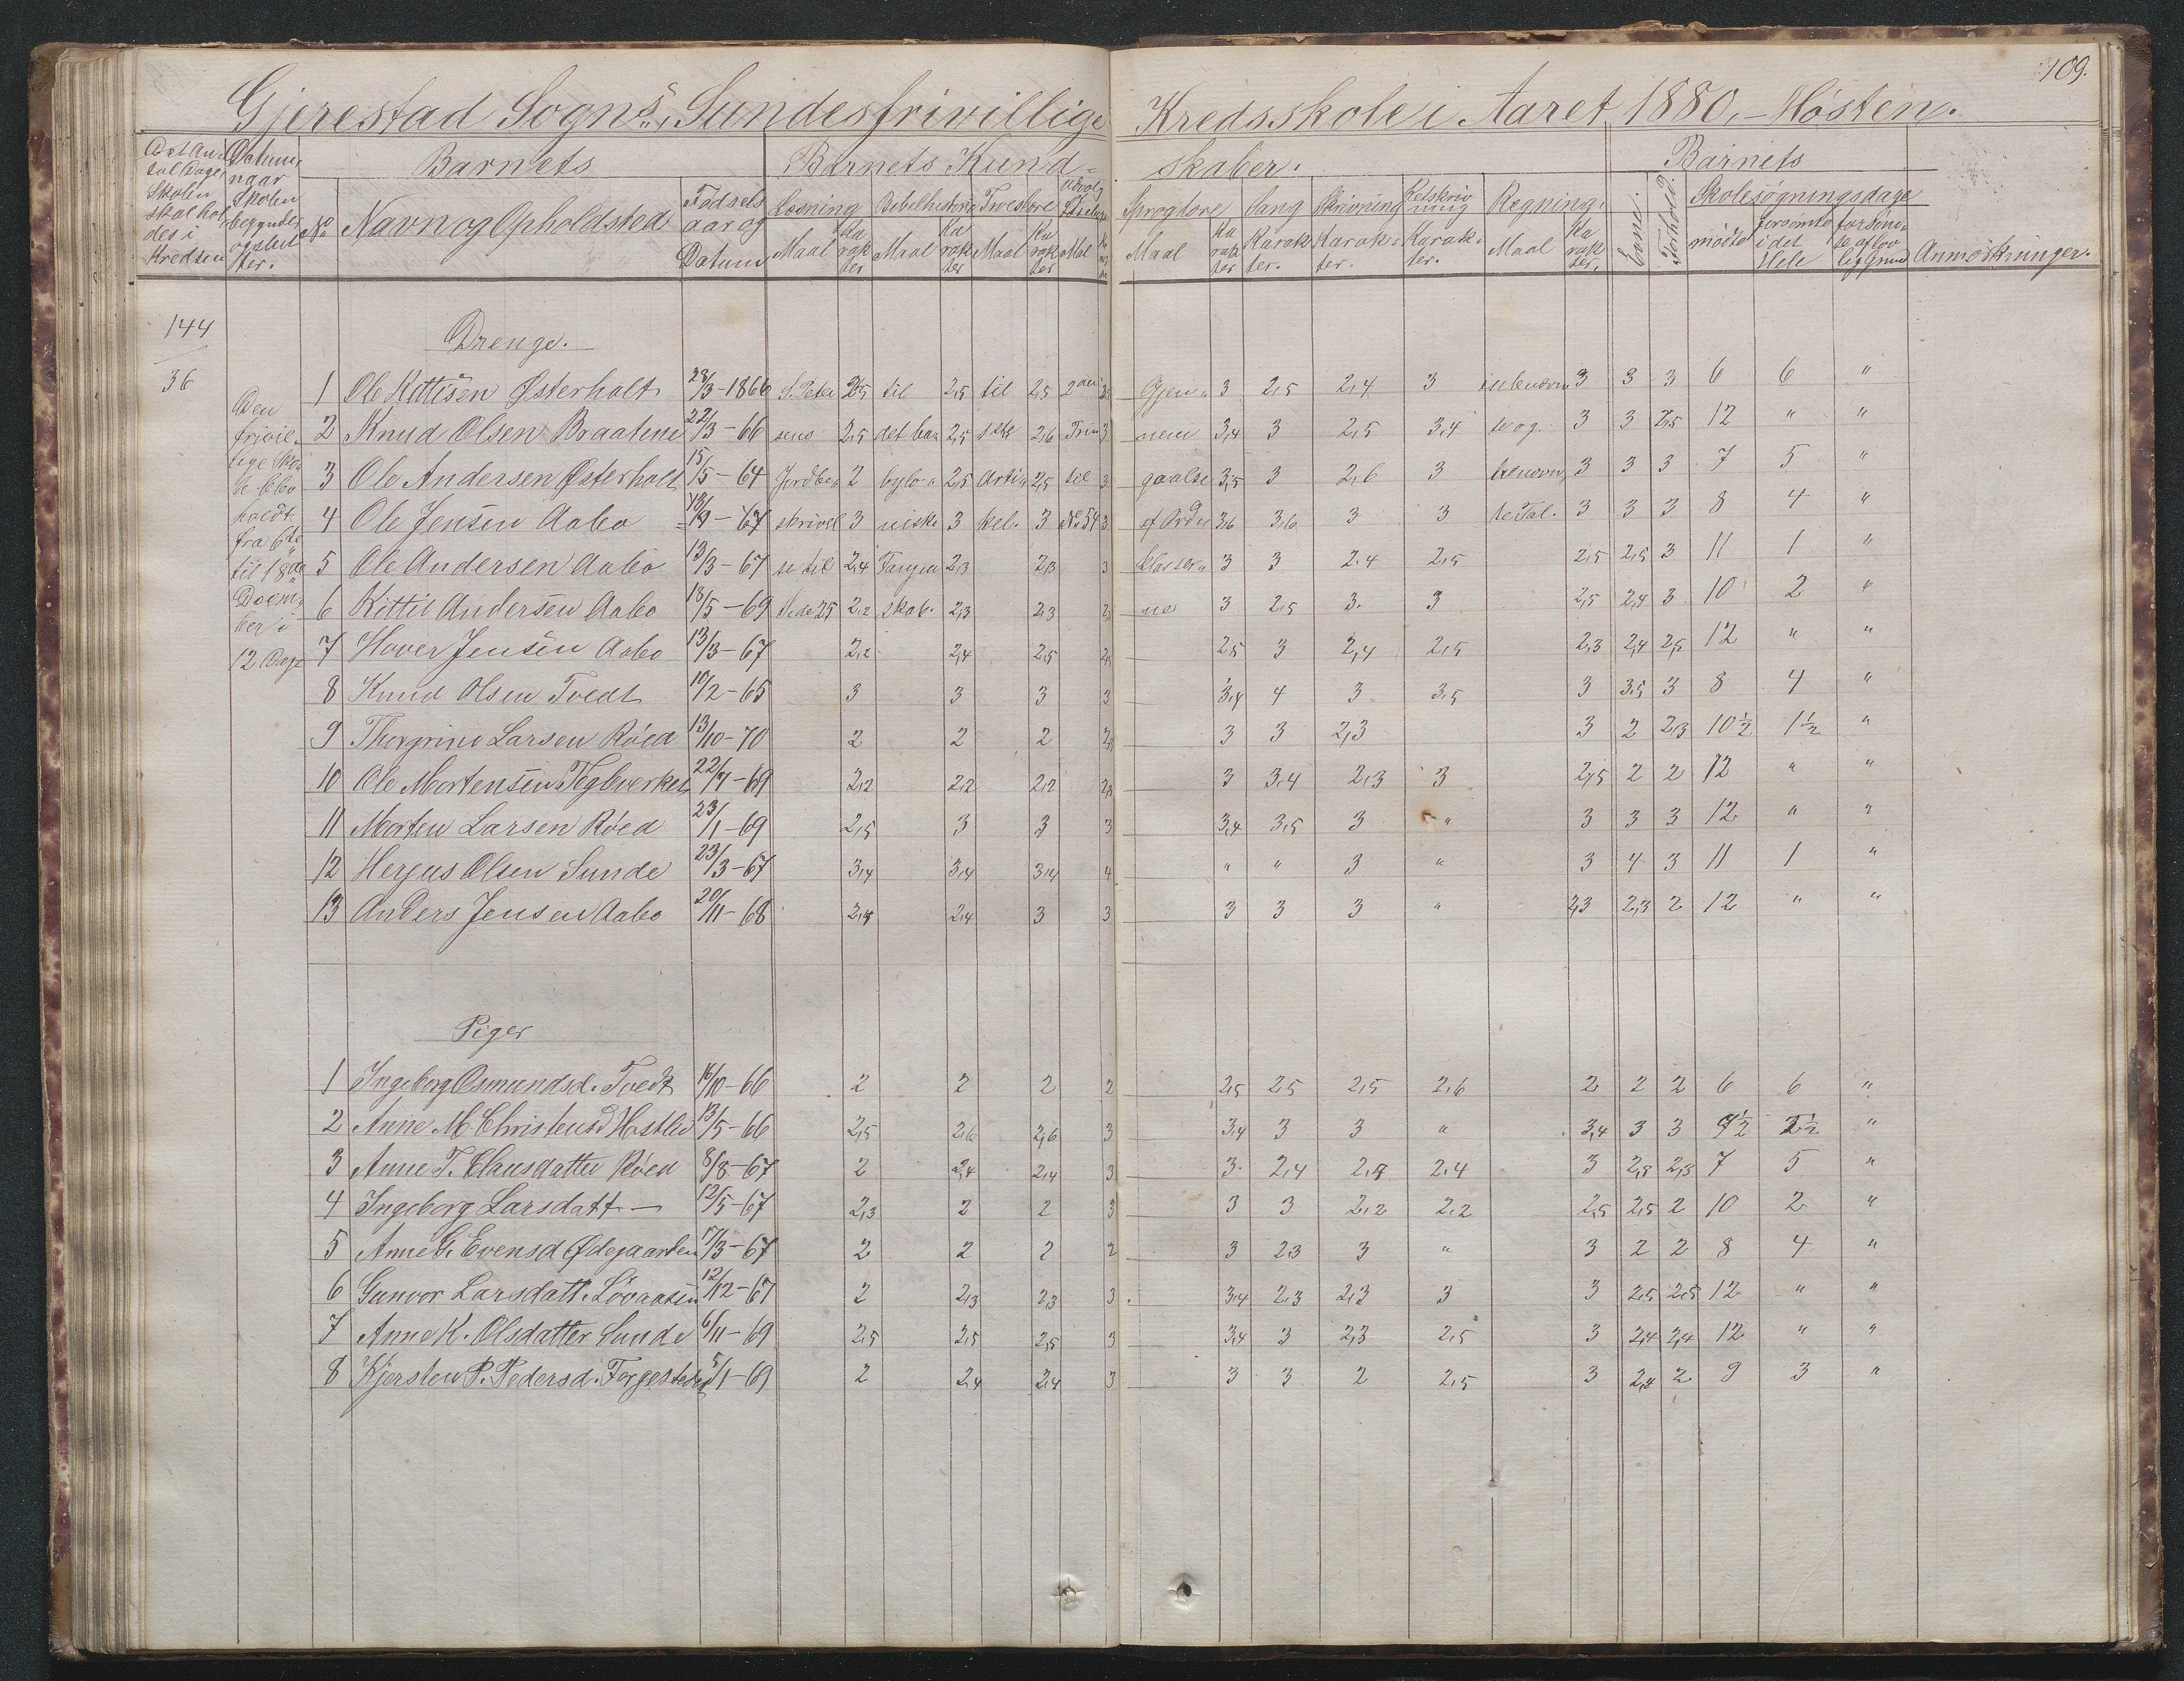 109.
Gjerestad Sogns, Sundesfrivillige Kredsskole i Aaret 1880,- Høsten.
Det An-
tal Dage
Skolen
skal hol
des i
Kredsen
Datum,
naar
Skolen
begynder
og slut
ter.
Barnets
Barnets Kund-
skaber.
Barnets
No
Navn og Opholdsted
Fødsels
aar og
Datum
Læsning
Bibelhistorie
Troeslære
Udvalg
Sproglære
Sang
Skrivning
Retskriv
ning
Regning.
Evne.
Forhold.
Skolesøgningsdage
Maal
Ka
rak
ter
Maal
Ka
rak
ter
Maal
Ka
rak
ter
Maal
Maal
Ka
rak
ter
Karak
ter.
Karak-
ter.
Karak-
ter.
Maal
Ka
rak
ter.
mødte
forsømte
i det
Hele
forsøm-
te af lov
lig grund
Anmærkninger.
144
36
Den
frivil-
lige Sko
le blev
holdt
fra 6te
til 18de
Decem-
ber i
12 Dage
Drenge.
1 Ole Kittilsen Østerholt 28/3-1866 S. Peter 2,5 til 2,5 til 2,5 2den Gjen- 3 2,5 2,4 3 3 3 3 6 6 "
2 Knud Olsen Braatene 22/3-66 sens 2,5 det ba- 2,5 2,6 3 nem 3,4 3 2,5 3,4 te og 3 3 2,5 12 " "
3 Ole Andersen Østerholt 15/5-64 Jordbe- 2 bylo- 2,5 Arti- 2,5 til 3 gaaelse 3,5 3 2,6 3 3 3 3 7 5 "
4 Ole Jensen Aabø 18/9-67 skrivel 3 niske 3 kel. 3 No 54 3 af Ord 3,6 3,6 3 3 te Tal. 3 3 3 8 4 "
5 Ole Andersen Aabø 13/3-67 se til 2,4 Fangen 2,3 2,3 3 klasser- 3 3 2,4 2,5 2,5 2,5 3 11 1 "
6 Kittil Andersen Aabø 18/5-69 Side 25 2,2 skab. 2,3 2,3 ne 3 2,5 3. 3 2,5 2,4 3 10 2 "
7 Haver Jensen Aabø 13/3-67 2,2 2,4 2,5 2,5 3 2,4 2,5 2,3 2,4 2,5 12 " "
8 Knud Olsen Tvedt 10/2-65 3 3 3 3 3,4 4 3 3,5 3 3,5 3 8 4 "
9 Thorgrine Larsen Røed 13/10-70 2 2 2 3 3 2,3 3 2 2,3 10 1/2 1 1/2 "
10 Ole Mortensen Teglverket 22/7-69 2,2 2,2 2,2 3 3,4 2,3 3 2,5 2 2 12 " "
11 Morten Larsen Røed 23/1-69 2,5 3 3 3 3,4 3,5 3 " 3 3 3 12 " "
12 Herjus Olsen Sunde 23/3-67 3,4 3,4 3,4 4 " " 3 " 3 4 3 11 1 "
13 Anders Jensen Aabø 20/11-68 2,4 2,4 3 3 3 3 3 " 2,3 2,3 2 12 " "
Piger
1 Ingeborg Osmundsd. Tvedt 16/10-66 2 2 2 2 2,5 2,5 2,5 2,6 2 2 2 6 6 "
2 Anne M. Christensd Hastlid 13/5-66 2,5 2,6 2,6 3 3,4 3 3 " 3,4 3 3 9 1/2 2 1/2 "
3 Anne T. Clausdatter Røed 8/8-67 2 2,4 2,4 3 3. 2,4 2,4 3 2,5 2,3 7 5 "
4 Ingeborg Larsdatt — 12/5-67 2,3 2 2 3 3 3 2,2 2,2 2,5 2,5 2 10 2 "
5 Anne G. Evensd Ødegaarden 17/3-67 2 2 2 2 3 2,3 3 " 3 2 2 8 4 "
6 Gunvor Larsdatt. Løvaasen 12/12-67 2 2,3 2,3 3 3,4 2,3 2,3 3 3 2,5 2,5 12 " "
7 Anne K. Olsdatter Sunde 6/11-69 2,5 2,5 2,5 3 3,4 3 2,3 2,5 3 2,4 2,4 12 " "
8 Kjersten P. Pedersd. 5/1-69 2 2,4 2,4 3 3 3 2 2,5 3 2,4 2 9 3 "